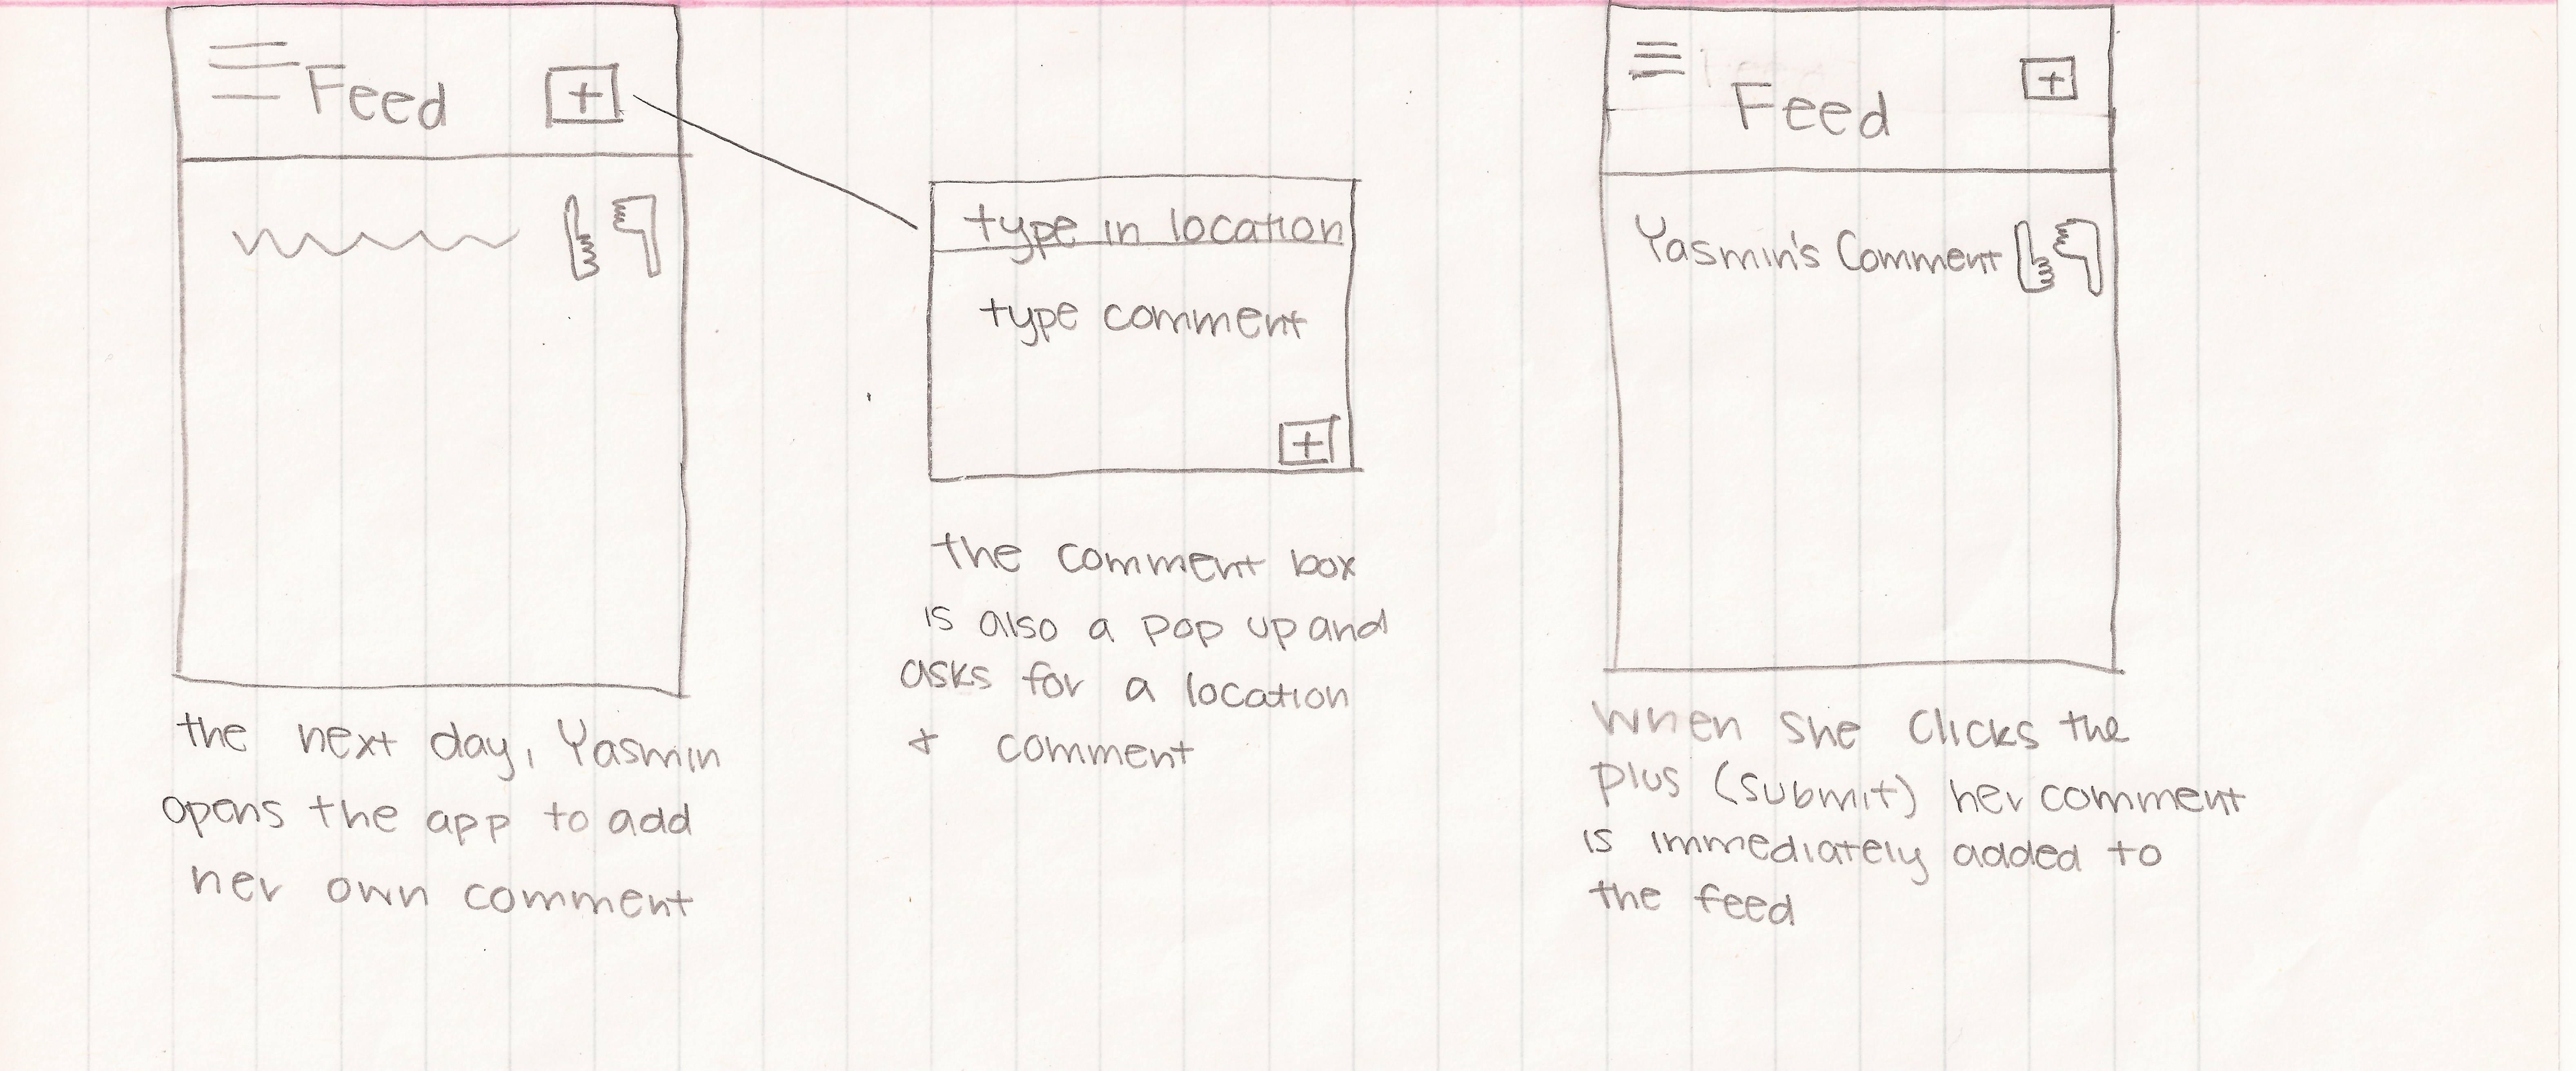 Feed +
the next day, Yasmin
opens the app to add
her own comment
type in location
type comment
+
the comment box
is also a pop up and
asks for a location
+ comment
Feed +
Yasmin's Comment
when she clicks the
plus (submit) her comment
is immediately added to
the feed